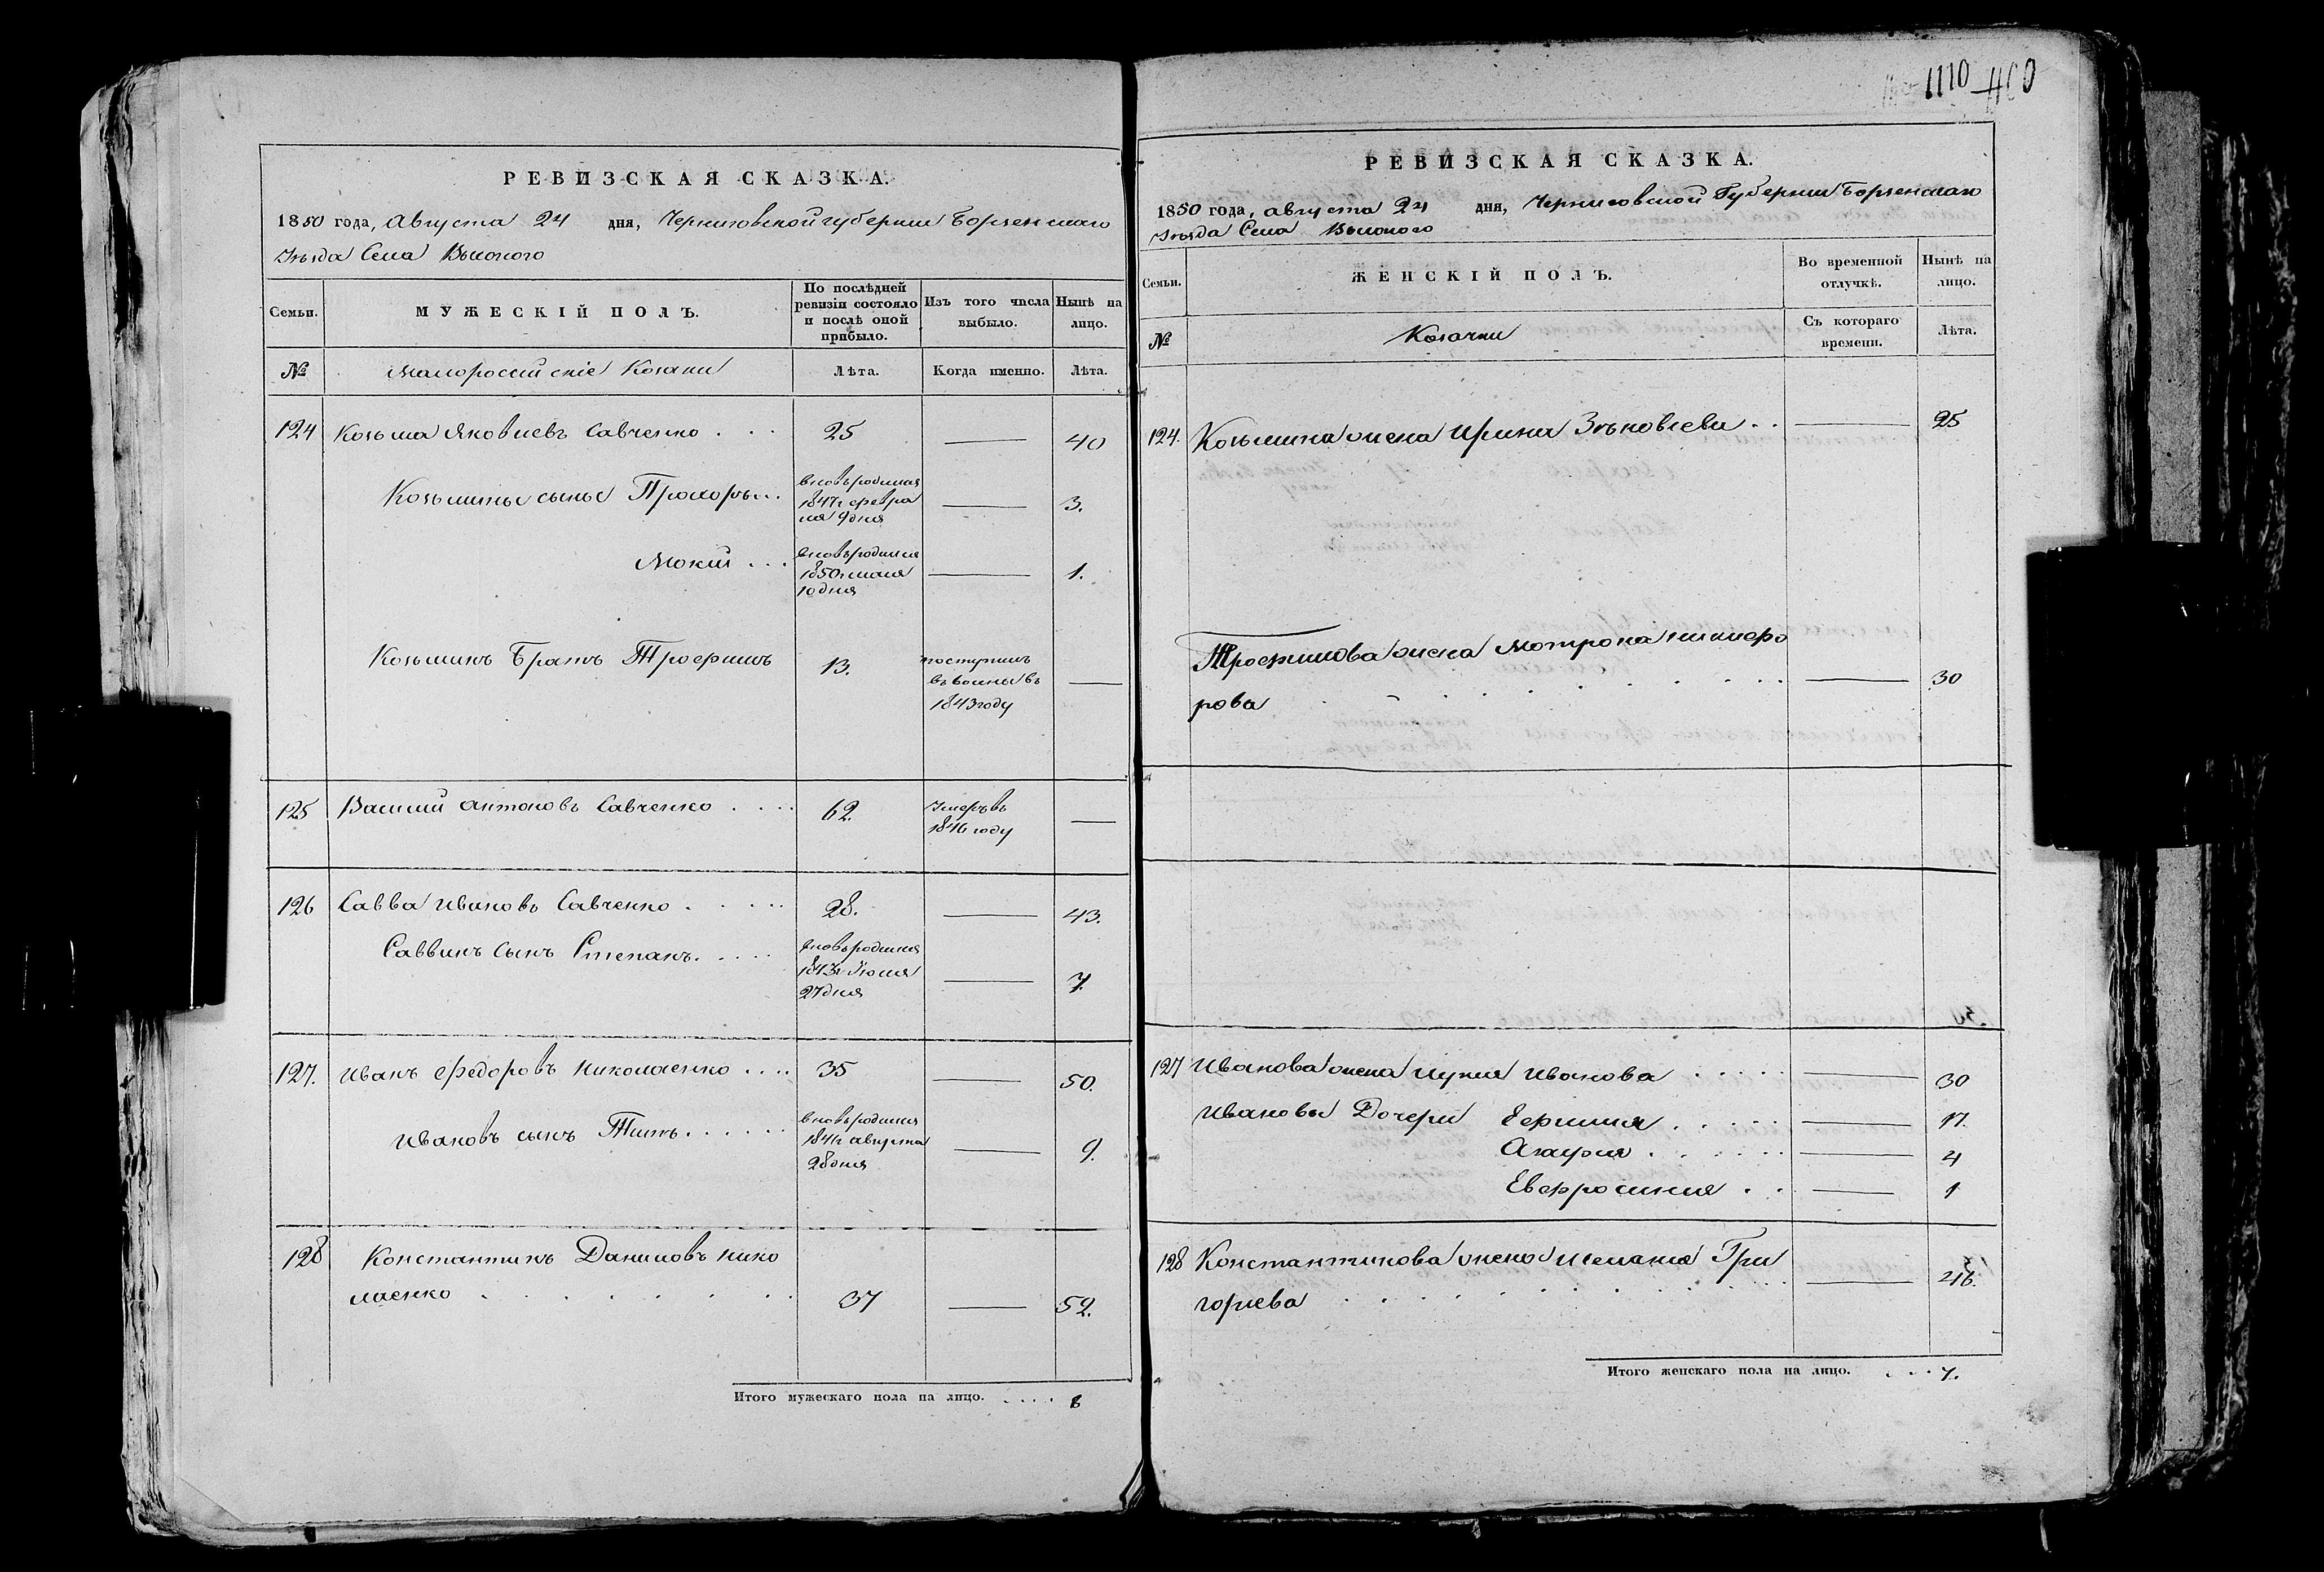 РЕВИЗСКАЯ СКАЗКА.
1850 года, Августа 24 дня, Черниговской губернии Борзенскаго
Уезда Села Высокого
Семьи.
МУЖЕСКІЙ ПОЛЪ.
По послѣдней ревизіи состояло и послѣ оной прибыло.
Изъ того числа выбыло.
Нынѣ на лицо.
№
Малороссийские Козаки
Лѣта.
Когда именно.
Лѣта.
124 Козьма Яковлевъ Савченко . . . 25 — 40
Козьмины сыны Прохоръ . . . вновьродился 1847г февраля 9 дня — 3.
Мокий . . . вновьродился 1850г мая 10 дня — 1.
Козьминъ Братъ Трофимъ 13. поступилъ въ воины въ 1843 году —
125 Василий Антоновъ Савченко . . . . 62. Умеръ въ 1846 году —
126 Савва Ивановъ Савченко . . . . . 28. — 43.
Саввинъ сынъ Степанъ. . . . . вновьродился 1843г Июня 27 дня — 7.
127. Иванъ Федоровъ Николаенко . . . . 35 — 50.
Ивановъ сынъ Титъ. . . . . . вновьродился 1841г августа 28 дня — 9.
128 Константинъ Даниловъ Нико
лаенко . . . . . . . 37 — 52.
Итого мужескаго пола на лицо. . . . . 8
1110
400
РЕВИЗСКАЯ СКАЗКА.
1850 года, августа 24 дня, Черниговской Губернии Борзенскаго
Уезда Села Высокого
Семьи.
ЖЕНСКІЙ ПОЛЪ.
Во временной отлучкѣ.
Нынѣ на лицо.
№
Козачки
Съ котораго времени.
Лѣта.
124. Козьмина жена Ирина . . — 25
Трофимова жена Мотрона
рова . . . . . . . . — 30
127 Иванова жена Иванова . . . . . — 30
Ивановы Дочери . . . . . — 17.
Агафия . . . . . . — 4
Евфросиния . . — 1
128 Константинова жена Мелания Гри
гориева . . . . . . . . — 46.
Итого женскаго пола на лицо. . . . 7.